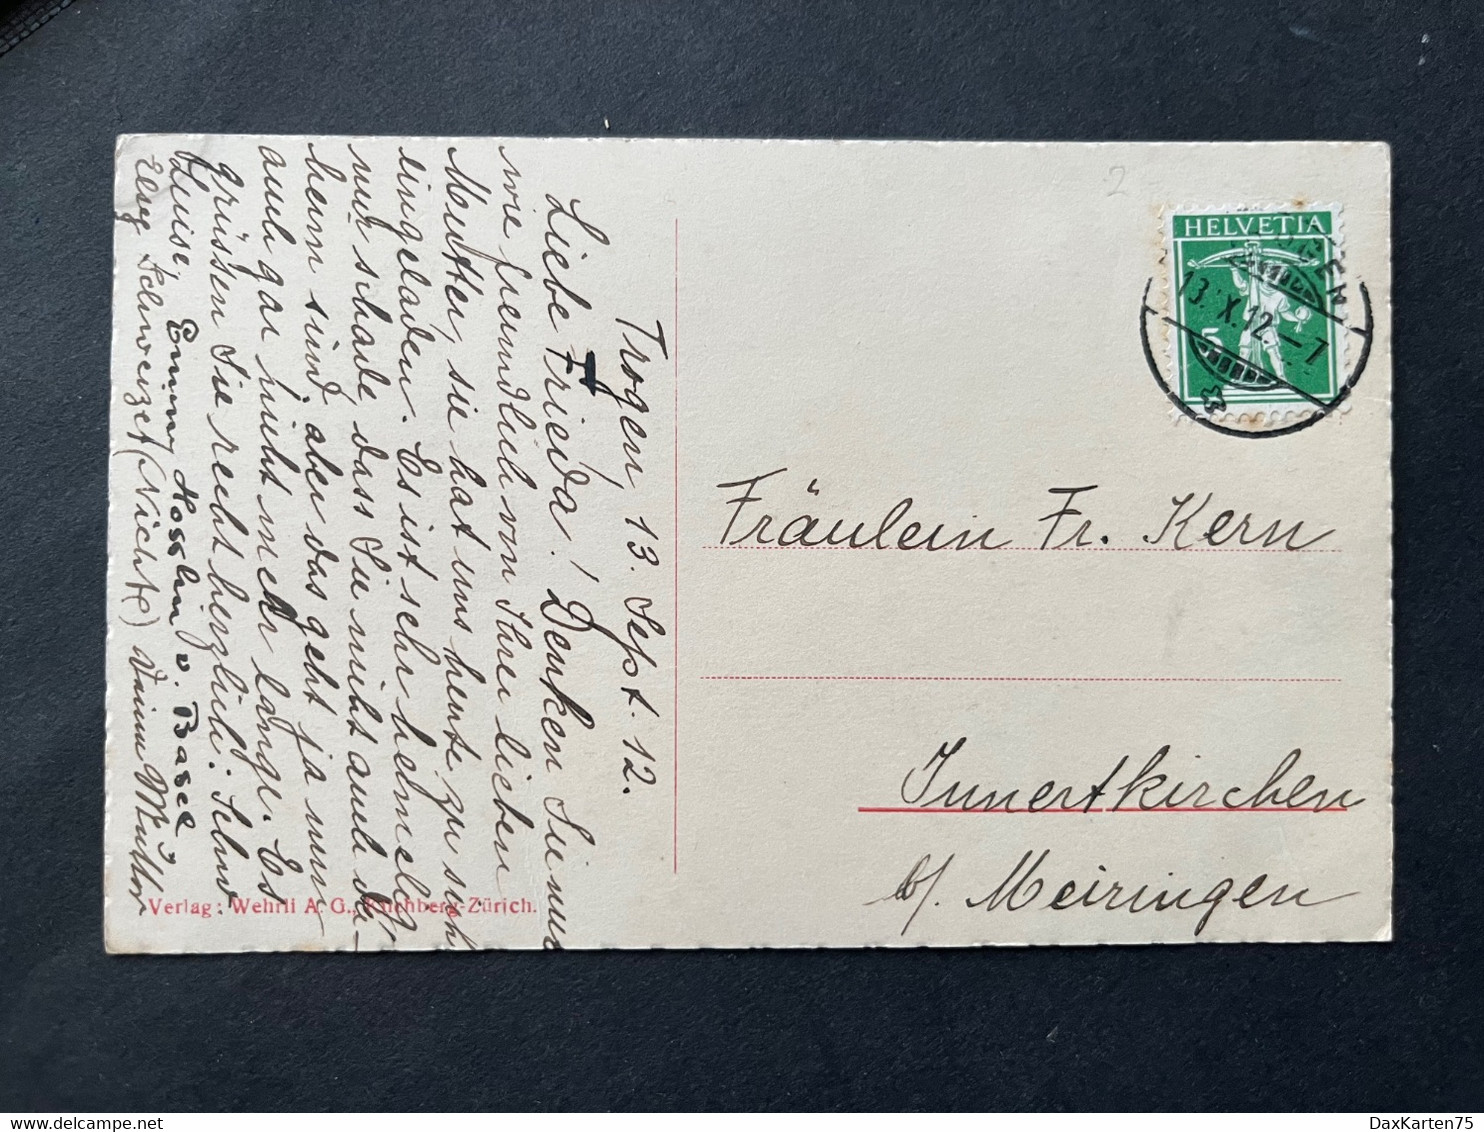 Trogen, 13. Sept. 12.
Liebe Frieda! Denken Sie nur
wie freundlich von Ihrer lieben
Mutter, sie hat uns heute zu sich
eingeladen. Es ist sehr heimelig
nur schade, dass Sie nicht auch da-
heim sind, aber das geht ja nun
auch gar nicht mehr lange. Es
grüssen Sie recht herzlich:
Luise, Emmy Hosslin v. Basel,
Elsy Schweizer (Nichte) Deine Mutter
Verlag: Wehrli A. G., Kilchberg-Zürich.
2
HELVETIA
5
13. X. 12 – 7
Fräulein Fr. Kern
Innertkirchen
b/ Meiringen
DaxKarten75